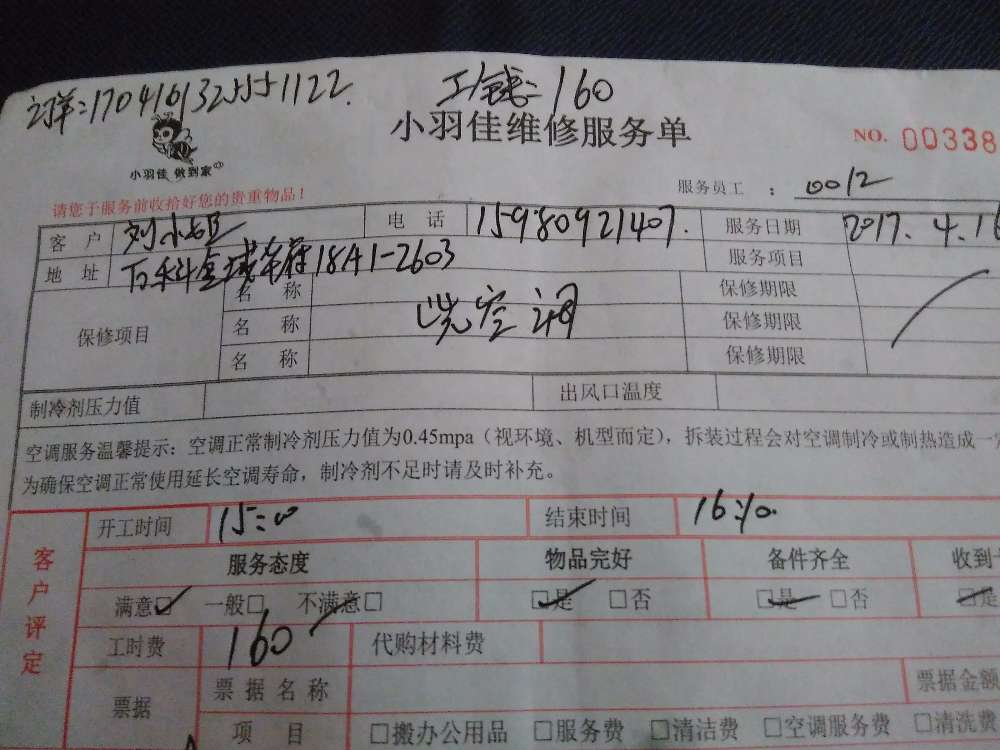 工钱：160
小羽佳维修服务单
NO. 00338
小羽佳 做到家
服务员工 ： 0012
请您于服务前收拾好您的贵重物品！
客 户 刘小姐 电 话 15980921407. 服务日期 2017.4.16
地 址 18A1-2603 服务项目
保修项目 名 称 保修期限
名 称 洗空调 保修期限
名 称 保修期限
制冷剂压力值 出风口温度
空调服务温馨提示：空调正常制冷剂压力值为0.45mpa（视环境、机型而定），拆装过程会对空调制冷或制热造成一
为确保空调正常使用延长空调寿命，制冷剂不足时请及时补充。
客户评定
开工时间 15:00 结束时间 16:10
服务态度 物品完好 备件齐全 收到
满意☑ 一般□ 不满意□ ☑是 □否 ☑是 □否 ☑是
工时费 160 代购材料费
票据 票据名称 票据金额
项 目 □搬办公用品 □服务费 □清洁费 □空调服务费 □清洗费